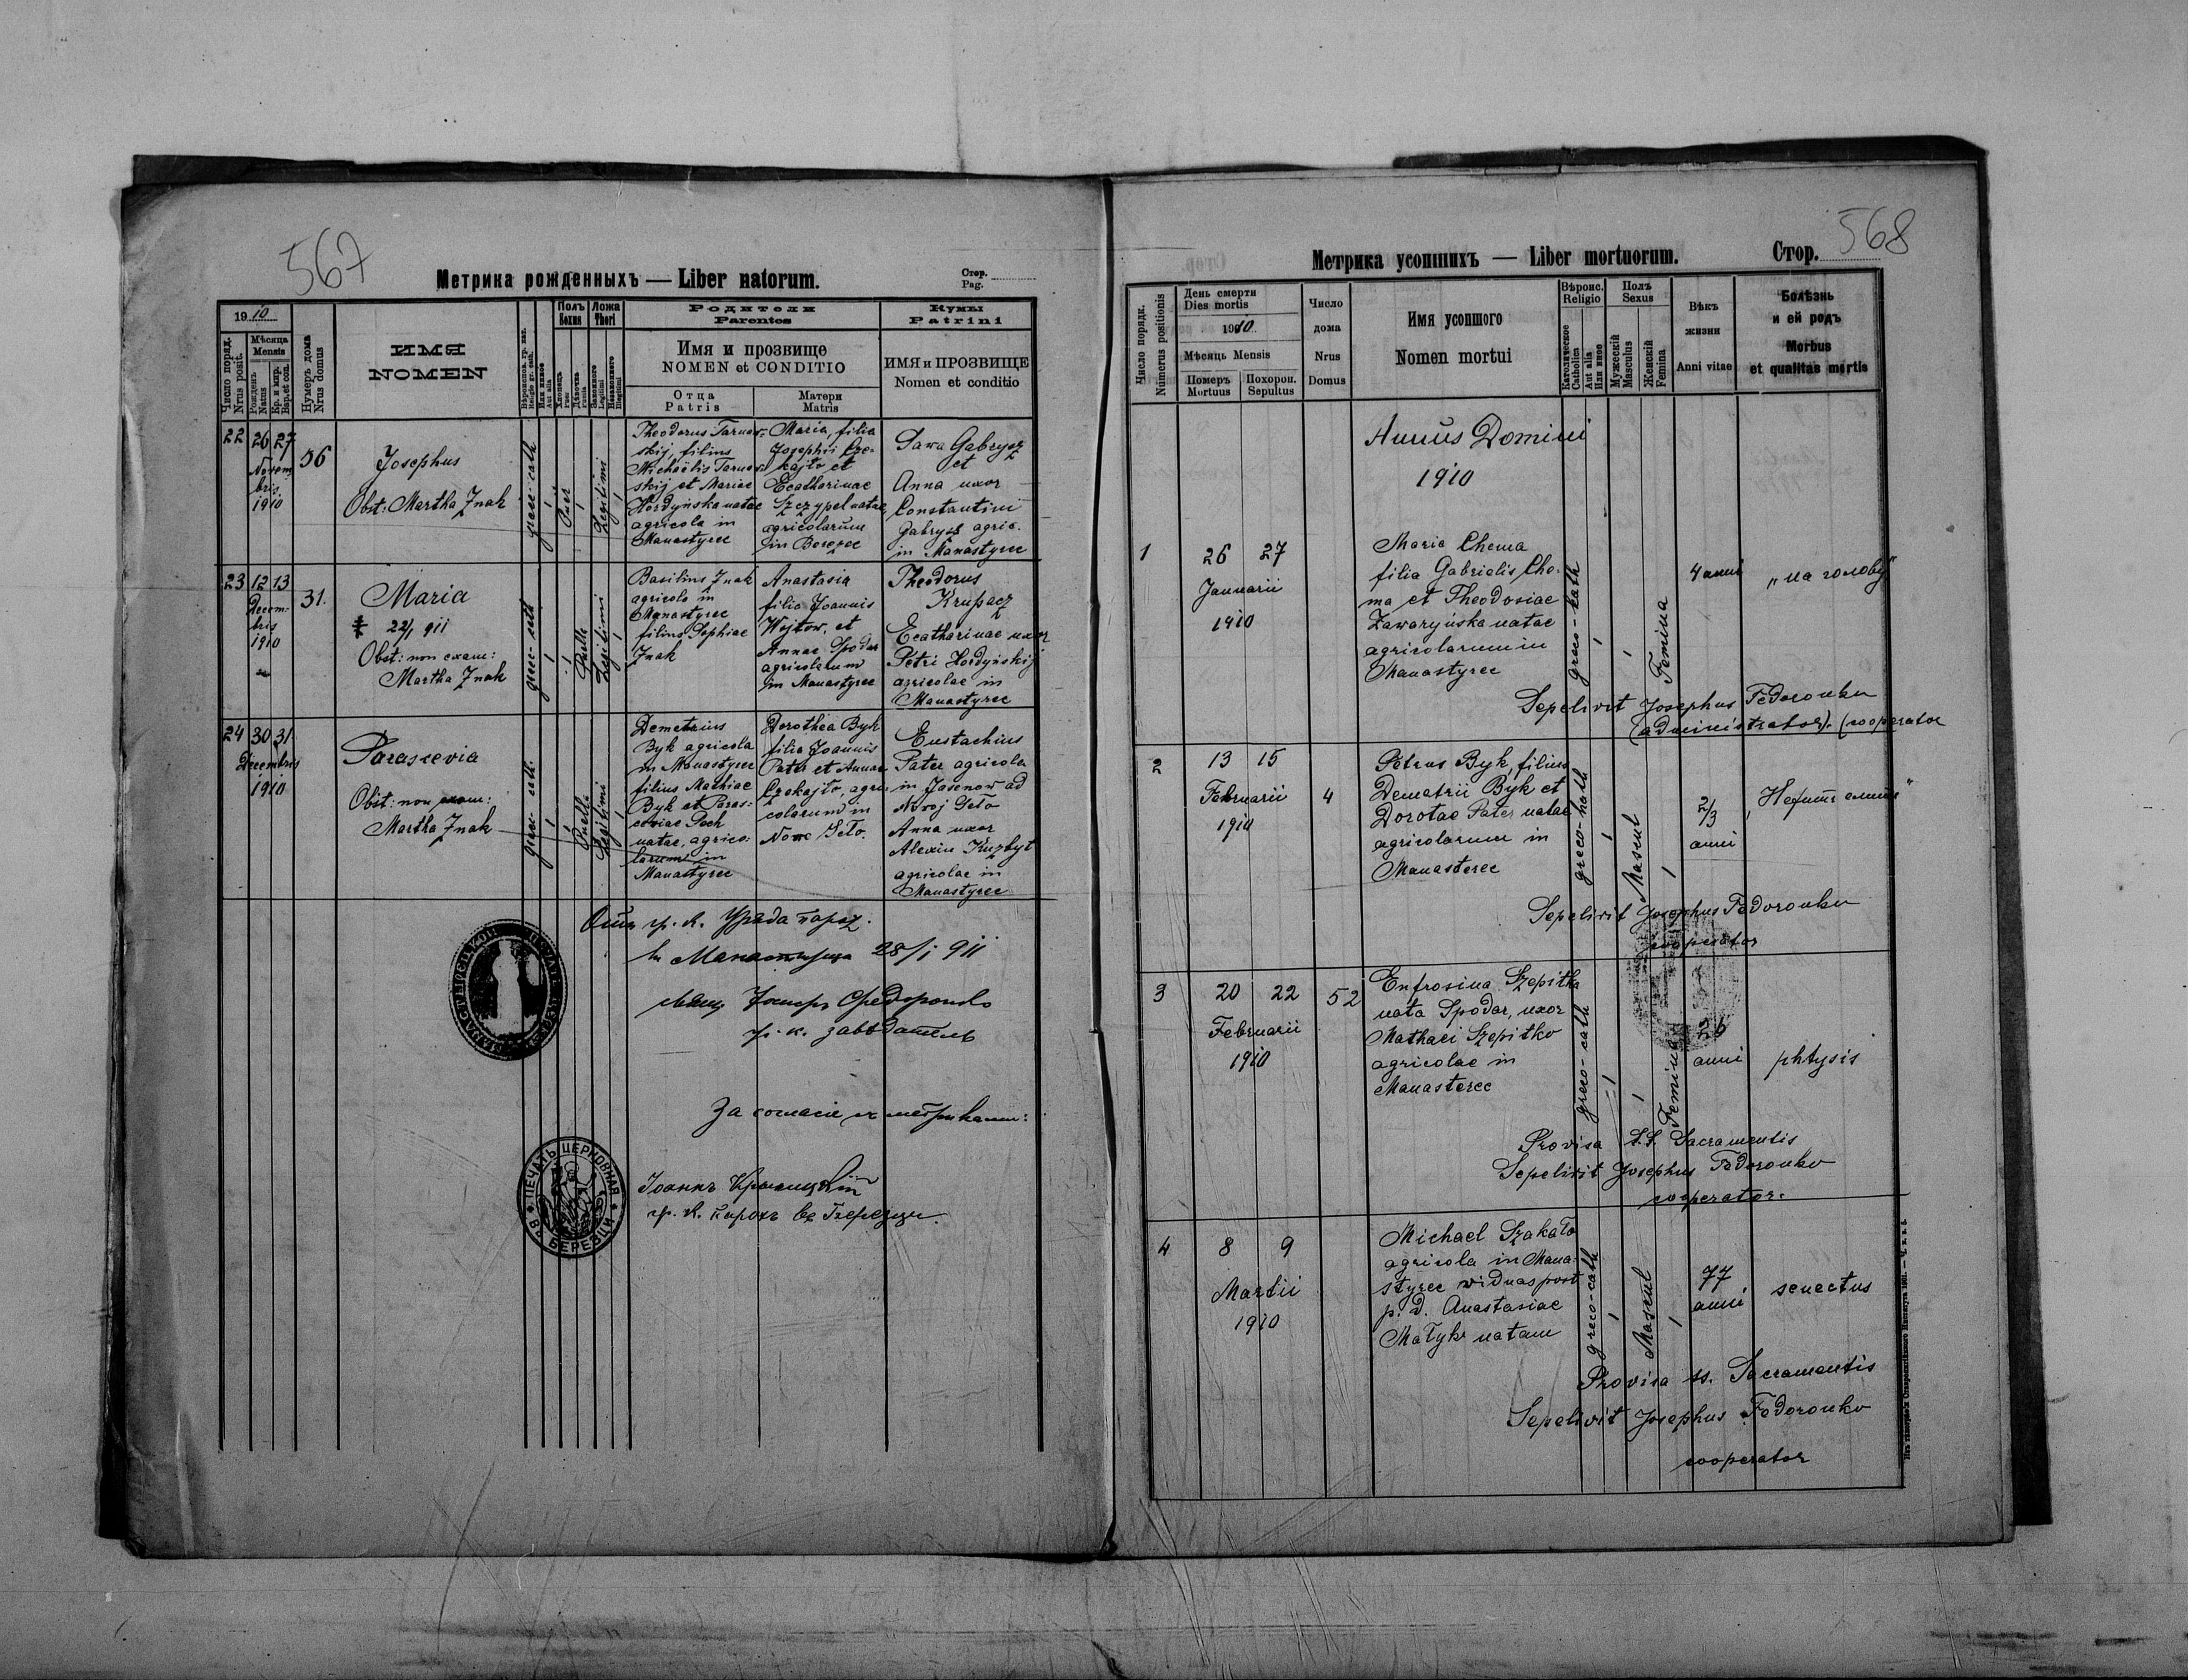 567
Метрика рожденныхъ — Liber natorum.
Стор.
Pag.
1910
Число поряд.
Nrus posit.
Мѣсяца
Mensis
Рожденъ
Natus
Нумеръ дома
Nrus domus
ИМЯ
NOMEN
Полъ
Sexus
Ложа
Thori
Родители
Parentes
Имя и прозвище
NOMEN et CONDITIO
Отца
Patris
Матери
Matris
Кумы
Patrini
ИМЯ и ПРОЗВИЩЕ
Nomen et conditio
22
26 27
Novem
bris
1910
56
Josephus
Obst: Martha Znak
Puer
Legitimi
Theodorus Tarnaw-
skij, filius
Michaëlis Tarnaw-
skij et Mariae
Hordyńska natae
agricola in
Manastyrec
Maria, filia
Josephi Cze-
kajło et
Ecatharinae
Szczypel natae
agricolarum
in Berezec
Sawa Gabrysz
et
Anna uxor
Constantini
Gabrysz agric.
in Manastyrec
23
12 13
Decem-
bris
1910
31.
Maria
22/1 911
Obst: non exam:
Martha Znak
Puella
Legitimi
Basilius Znak
agricola in
Manastyrec
filius Sophiae
Znak
Anastasia
filia Joannis
Wojtow. et
Annae Spodar
agricolarum
in Manastyrec
Theodorus
Krupacz
Ecatharinae uxor
Petri Hordyńskij
agricolae in
Manastyrec
24
30 31
Decembris
1910
Parascevia
Obst: non exam:
Martha Znak
Puella
Legitimi
Demetrius
Byk agricola
in Manastyrec
filius Mathiae
Byk et Paras-
ceviae Pech
natae, agrico-
larum in
Manastyrec
Dorothea Byk
filia Joannis
Pater et Annae
Czekajło, agri-
colarum in
Nowe Seło.
Eustachius
Pater agricola
in Jasenow ad
Nowoj Seło
Anna uxor
Alexii Kuzbyt
agricolae in
Manastyrec
Отъ гр. к. Уряда парох.
въ Манастырци 28/1 911
Іосифъ Федоронько
гр. к. завѣдатель
За согласіе съ метриками:
ПЕЧАТЬ ЦЕРКОВНАЯ
ВЪ БЕРЕЗЦИ
Іоаннъ
гр. к. парохъ въ Березци.
568
Метрика усопшихъ — Liber mortuorum.
Стор.
Число порядк.
Numerus positionis
День смерти
Dies mortis
1910.
Мѣсяцъ Mensis
Померъ
Mortuus
Похорон.
Sepultus
Число
дома
Nrus
Domus
Имя усопшого
Nomen mortui
Вѣроис.
Religio
Католическое
Catholica
Aut alia
Или иное
Полъ
Sexus
Мужескій
Masculus
Женскій
Femina
Вѣкъ
жизни
Anni vitae
Болѣзнь
и ей родъ
Morbus
et qualitas mortis
Annus Domini
1910
1
26 27
Januarii
1910
Maria Choma
filia Gabrielis Cho-
ma et Theodosiae
Zawaryńska natae
agricolarum in
Manastyrec
greco-kath
Femina
4 anni
„на голову"
Sepelivit Josephus Fedoronko
(administrator). (cooperator
2
13 15
Februarii
1910
4
Petrus Byk, filius
Demetrii Byk et
Dorotae Pater natae
agricolarum in
Manasterec
greco-kath
Mascul
2/3
anni
Sepelivit Josephus Fedoronko
cooperator
3
20 22
Februarii
1910
52
Eufrosina Szepitka
nata Spodar, uxor
Mathaei Szepitko
agricolae in
Manasterec
greco-cath
Femina
26
anni
phtysis
Provisa S.S. Sacramentis
Sepelivit Josephus Fedoronko
cooperator.
4
8 9
Martii
1910
Michael Szakało
agricola in Mana-
styrec widuas post
p. d. Anastasiae
Małyk natam
greco-cath
Mascul
77
anni
senectus
Provisa ss. Sacramentis
Sepelivit Josephus Fedoronko
cooperator